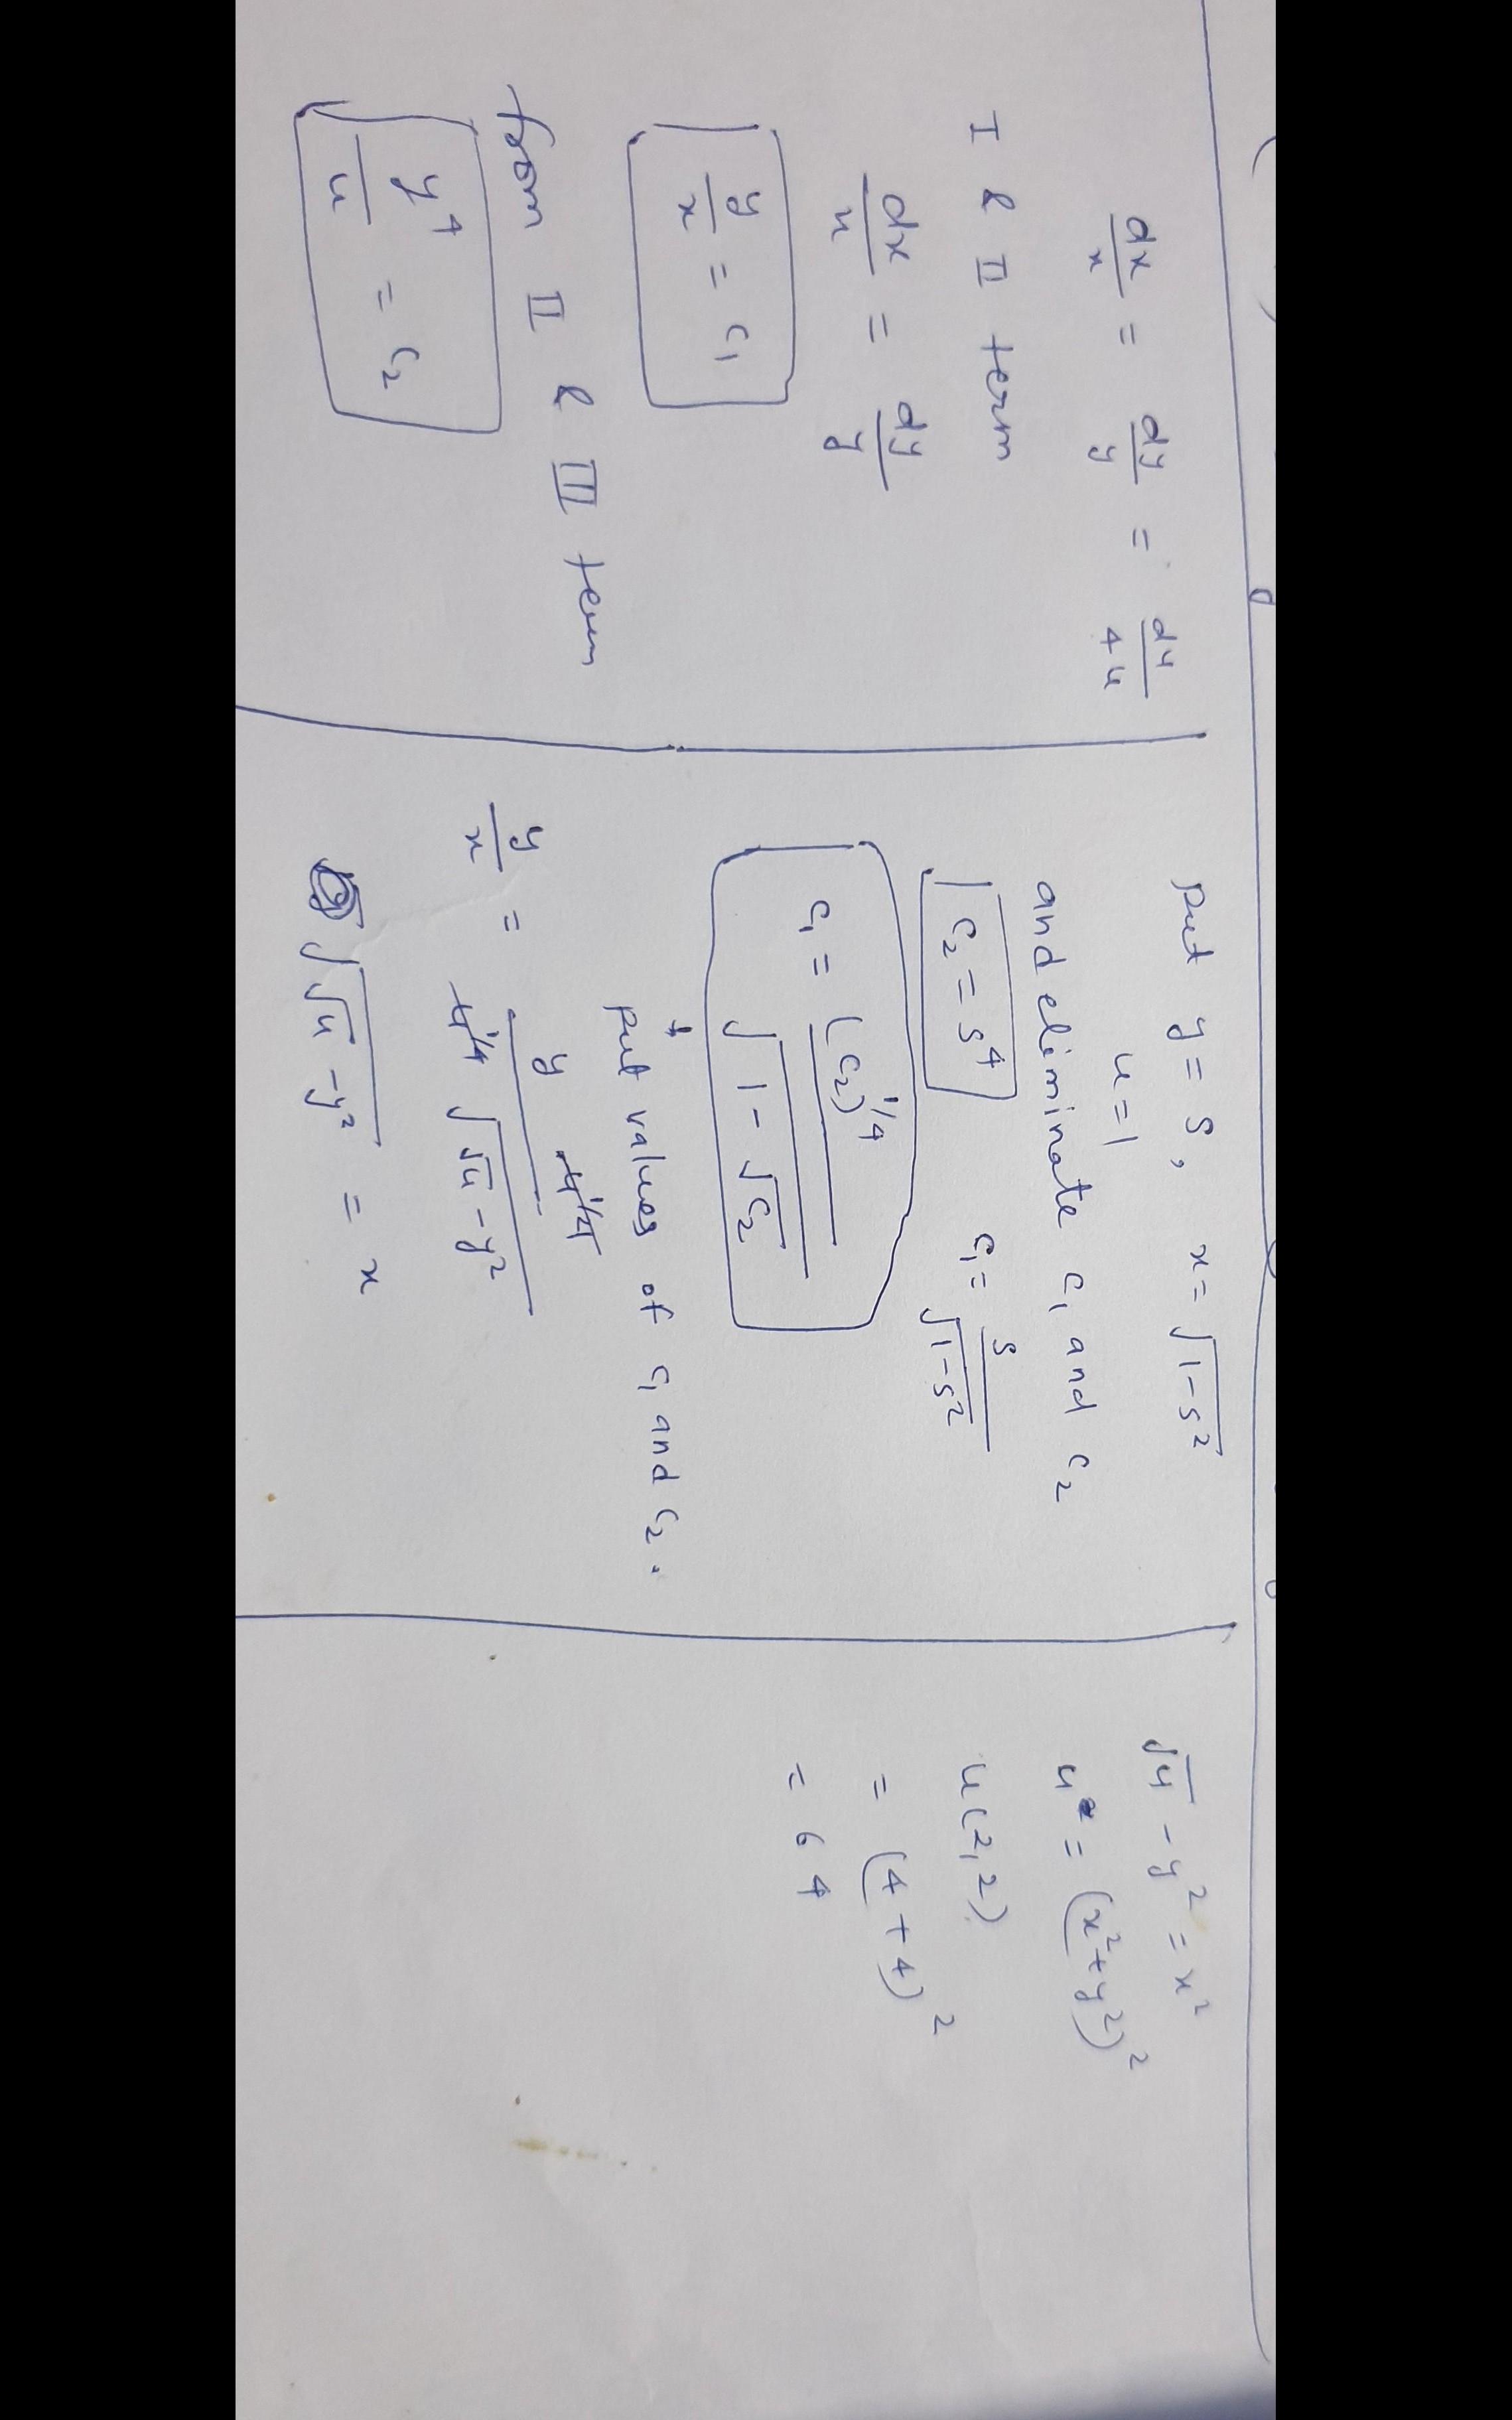 dx/x = dy/y = du/4u
I & II term
dx/x = dy/y
y/x = c₁
from II & III term
y⁴/u = c₂
put y = s, x = √(1-s²)
u = 1
and eliminate c₁ and c₂
c₂ = s⁴ c₁ = s/√(1-s²)
c₁ = (c₂)^(1/4)/√(1-√c₂)
put values of c₁ and c₂.
y/x = y u^(1/4)/(u^(1/4) √(√u - y²))
√(√u - y²) = x
√u - y² = x²
u = (x²+y²)²
u(2,2)
= (4+4)²
= 64